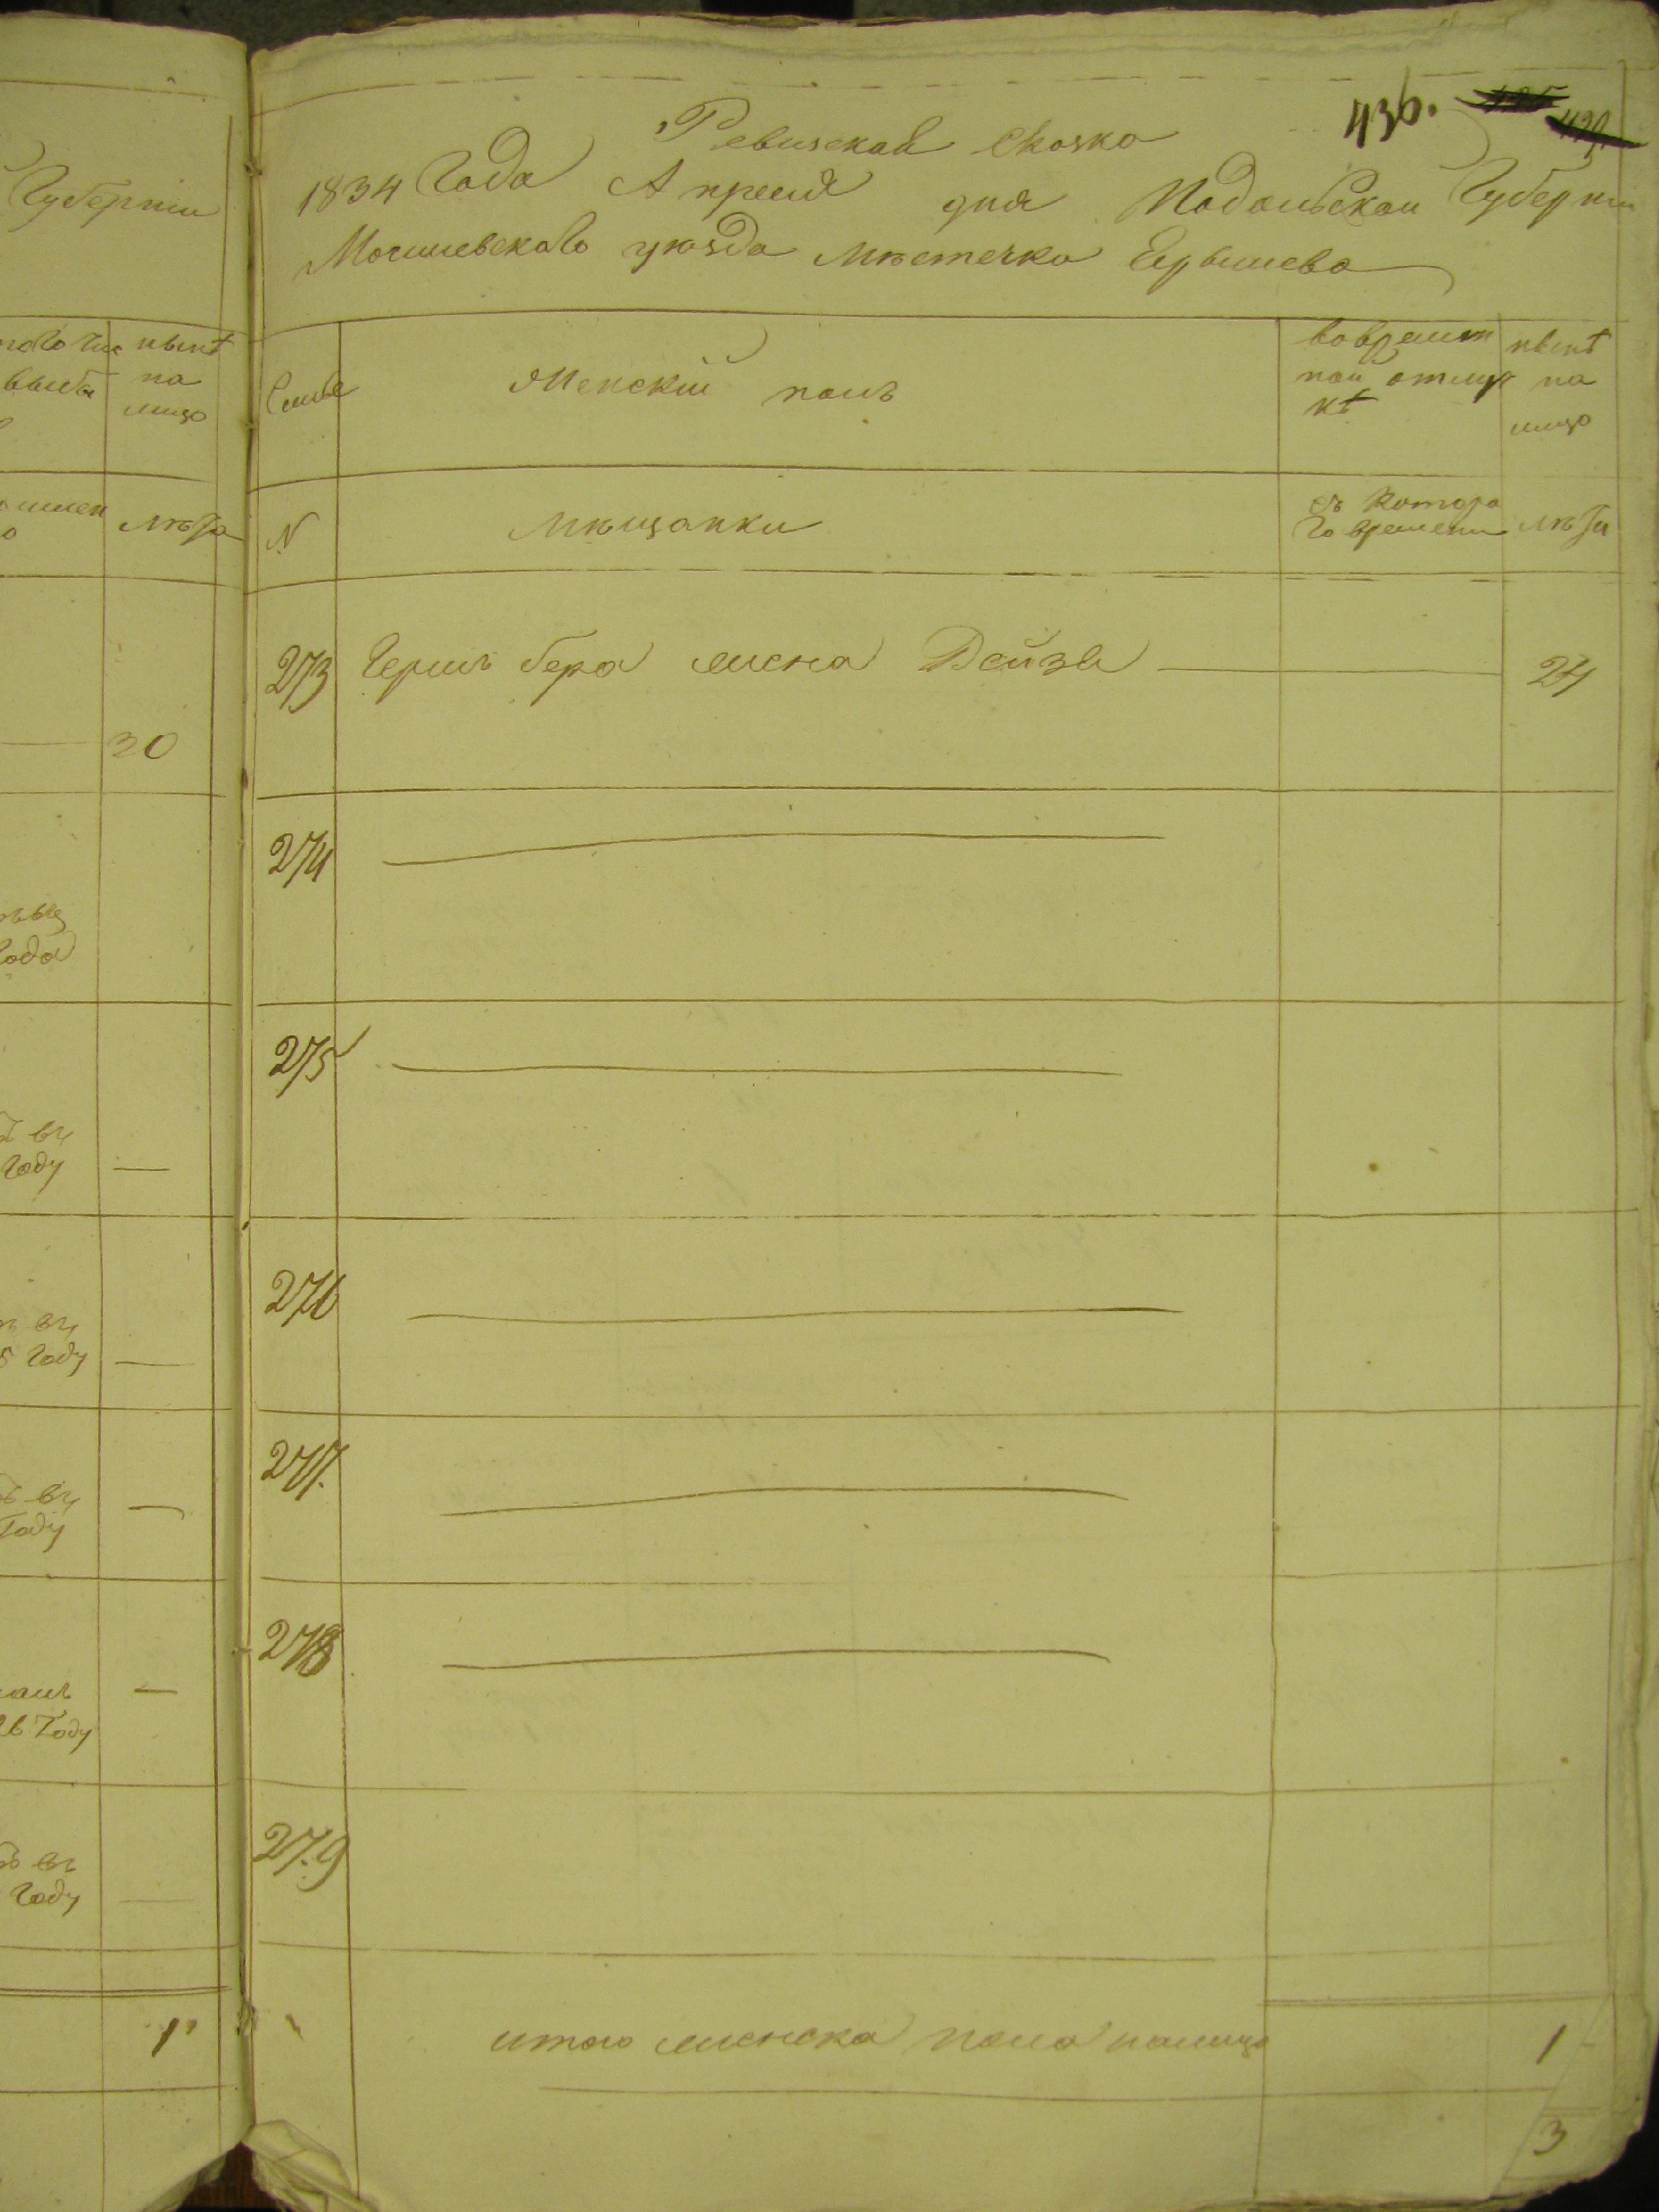 Губернiи
нынѣ
на
лицо
лѣта
30
года
году
году
году
году
году
1
436.
Ревизская Сказка
1834 Года Апреля дня Подольской Губернiи
Могилевскаго уѣзда мѣстечка Ярышева
Семьи
Женскiй полъ
во времѧн
ной отлуч
кѣ
нынѣ
на
лицо
N
мѣщанки
съ котора
го времени
лѣта
273 Герша бера жена Дейзя 24
274
275
276
277.
278
279
итого женска пола налицо 1
3